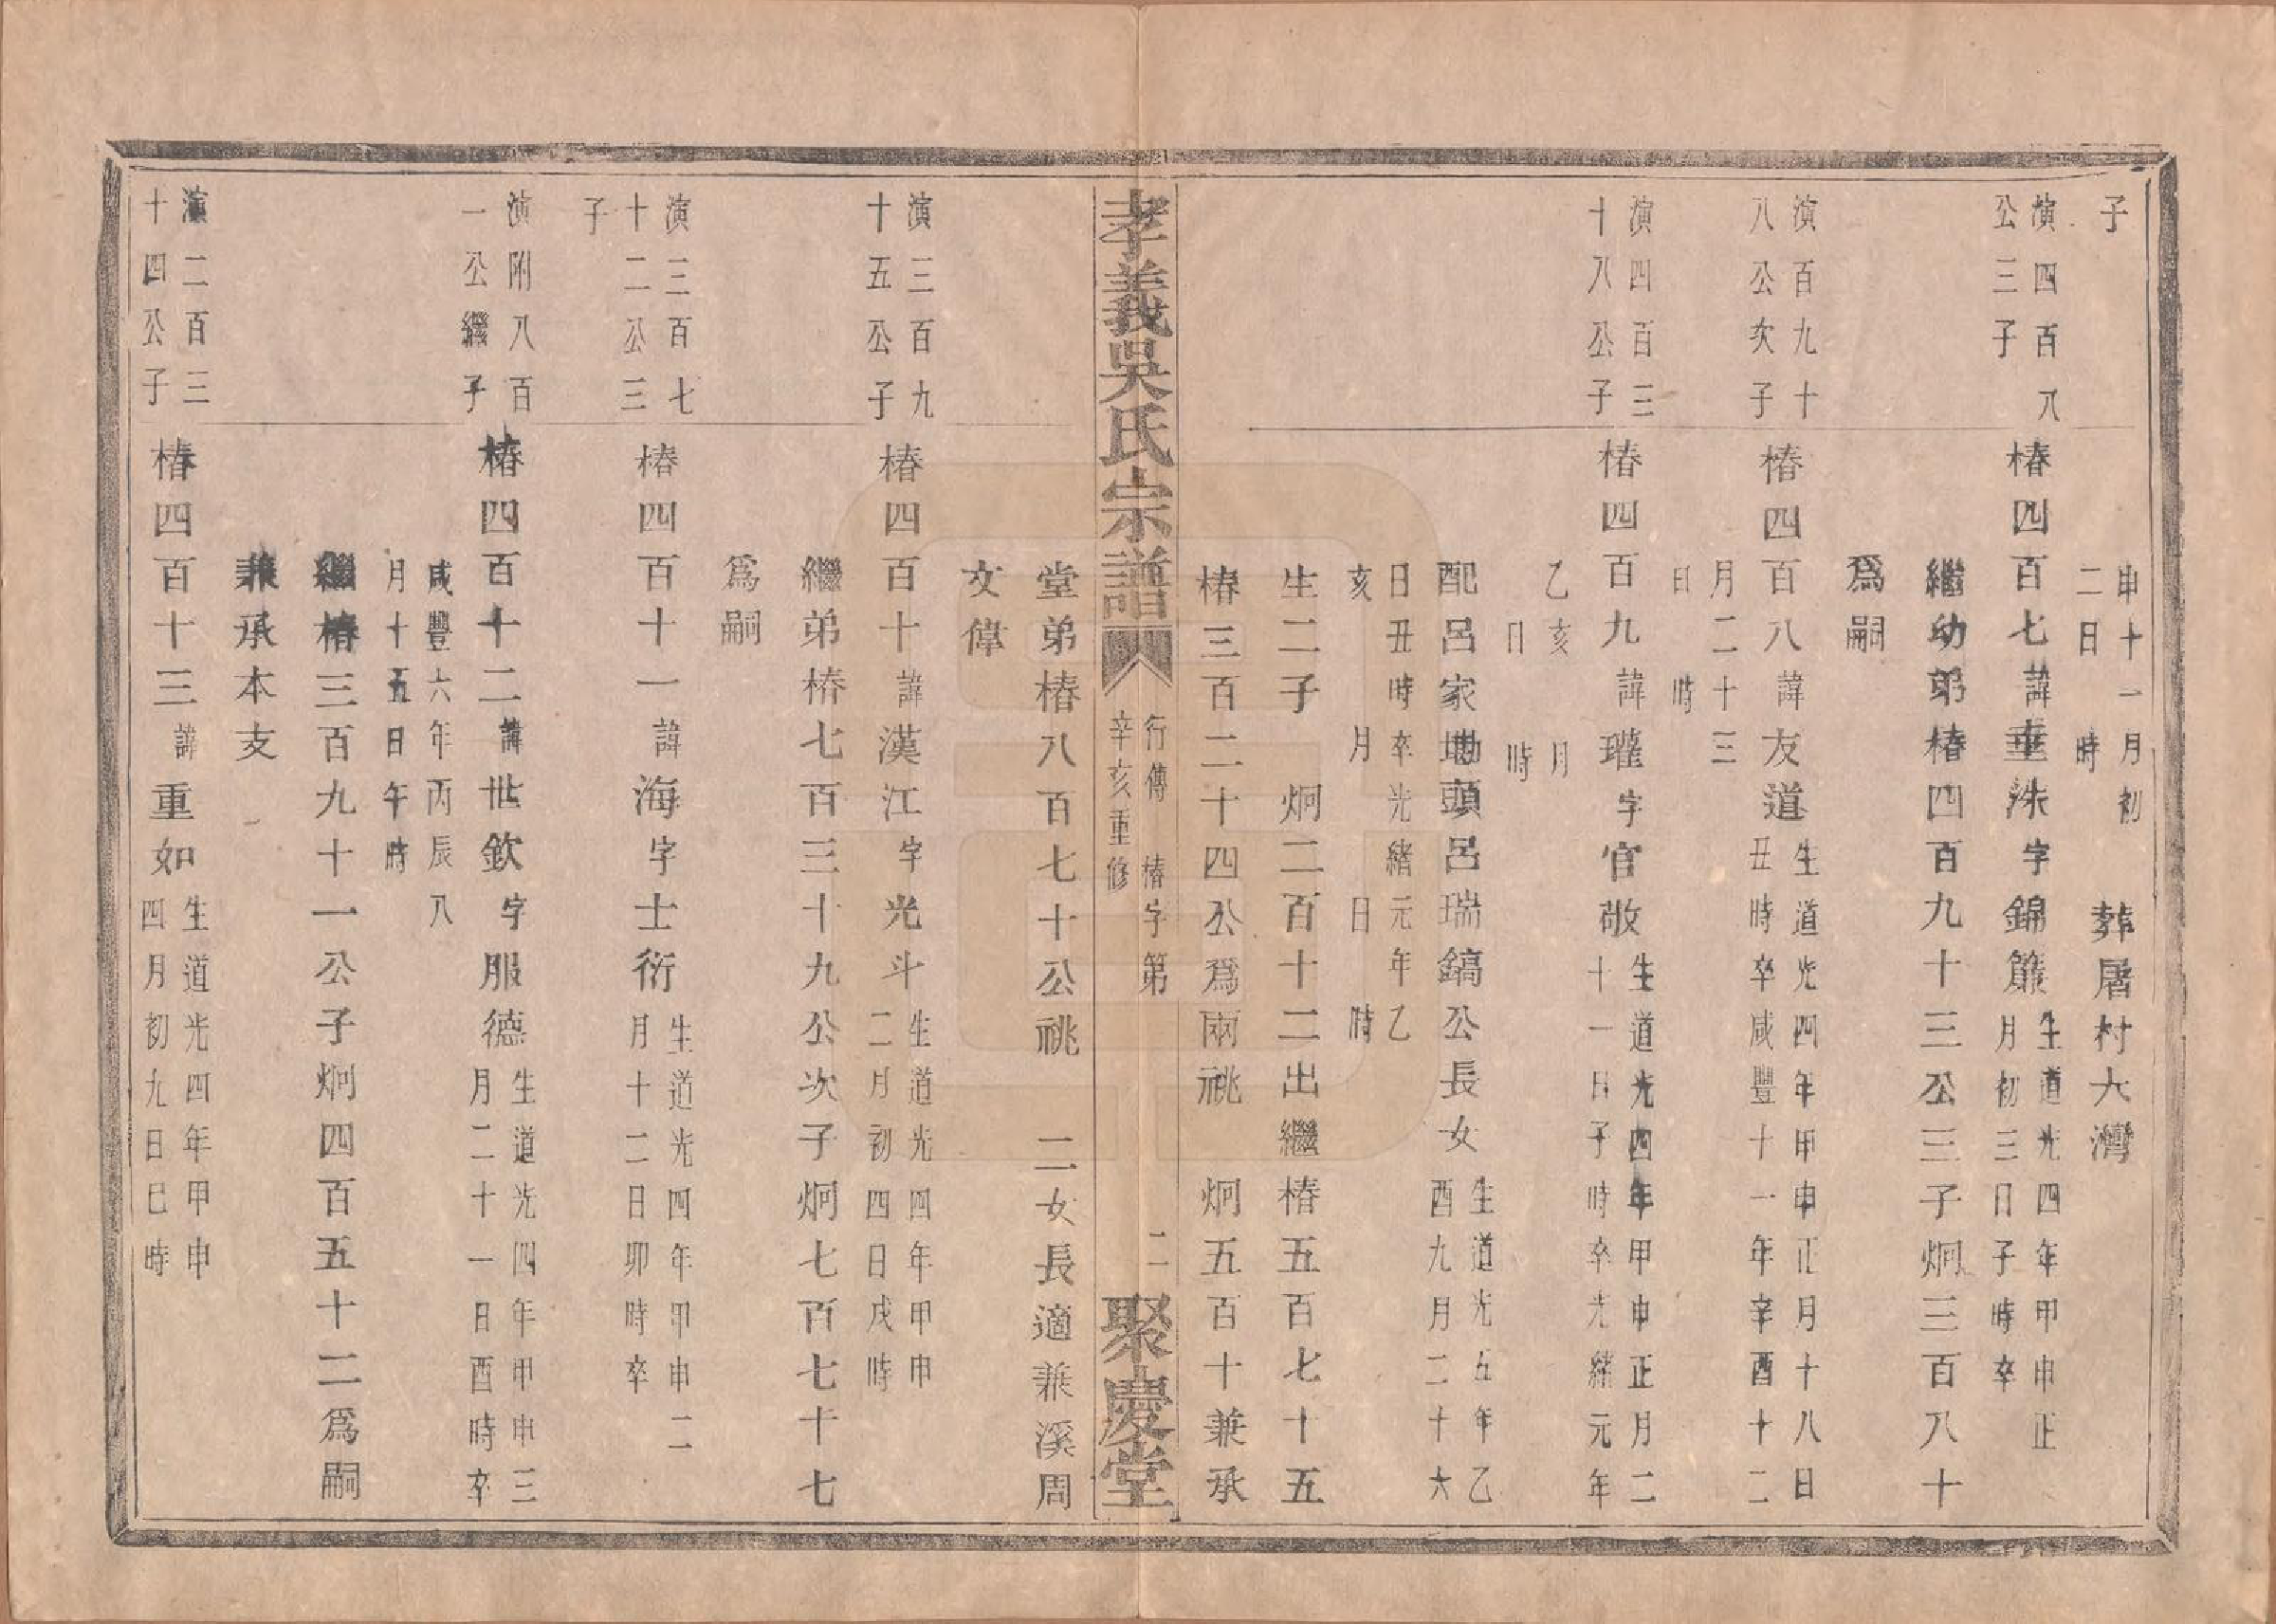 子
申十一月初
二日　時
葬屠村大灣
演四百八
公三子
椿四百七諱垂洙字錦簾
生道光四年甲申正
月初三日子時卒
繼幼弟椿四百九十三公三子炯三百八十
爲嗣
演百九十
八公次子
椿四百八諱友道
生道光四年甲申正月十八日
丑時卒咸豐十一年辛酉十二
月二十三
日　時
演四百三
十八公子
椿四百九諱瓘字官敬
生道光四年甲申正月二
十一日子時卒光緒元年
乙亥　月
日　時
配呂家地頭呂瑞鎬公長女
生道光五年乙
酉九月二十六
日丑時卒光緒元年乙
亥　月　日　時
生二子　炯二百十二出繼椿五百七十五
椿三百二十四公爲兩祧　炯五百十兼承
孝義吳氏宗譜
行傳　椿字第
辛亥重修
二
聚慶堂
堂弟椿八百七十公祧　二女長適兼溪周
文偉
演三百九
十五公子
椿四百十諱漢江字光斗
生道光四年甲申
二月初四日戌時
繼弟椿七百三十九公次子炯七百七十七
爲嗣
演三百七
十二公三
子
椿四百十一諱海字士衍
生道光四年甲申二
月十二日卯時卒
演附八百
一公繼子
椿四百十二諱世欽字服德
生道光四年甲申三
月二十一日酉時卒
咸豐六年丙辰八
月十五日午時
繼椿三百九十一公子炯四百五十二爲嗣
兼承本支
演二百三
十四公子
椿四百十三諱重如
生道光四年甲申
四月初九日巳時